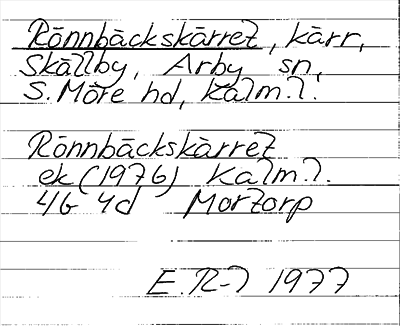 Rönnbäckskärret, kärr,
Skällby, Arby sn,
S. Möre hd, Kalm. l.
Rönnbäckskärret
ek (1976) Kalm. l.
4G 4d Mortorp
E. R-l 1977